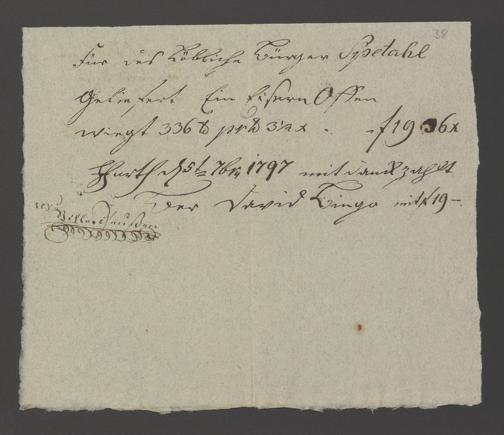 38
Für das Löbliche Bürger Spetahl
Geliefert Ein Eisern Offen
wiegt 336 ℔ pr ℔ 3½ x . f 19 36 x
den 5t 7br 1797 mit dank zahlt
David mit f 19 –